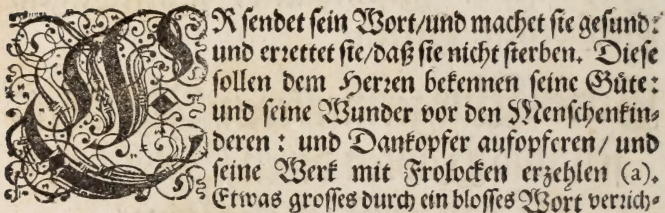 ER sendet sein Wort/und machet sie gesund:
und erzettet sie/daß sie nicht sterben. Diese
sollen dem Herzen bekennen seine Güte:
und seine Wunder vor den Menschenkin⸗
deren: und Dankopfer aufopferen/ und
seine Werk mit Frolocken erzehlen (a).
Etwas grosses durch ein blosses Wort verzich⸗